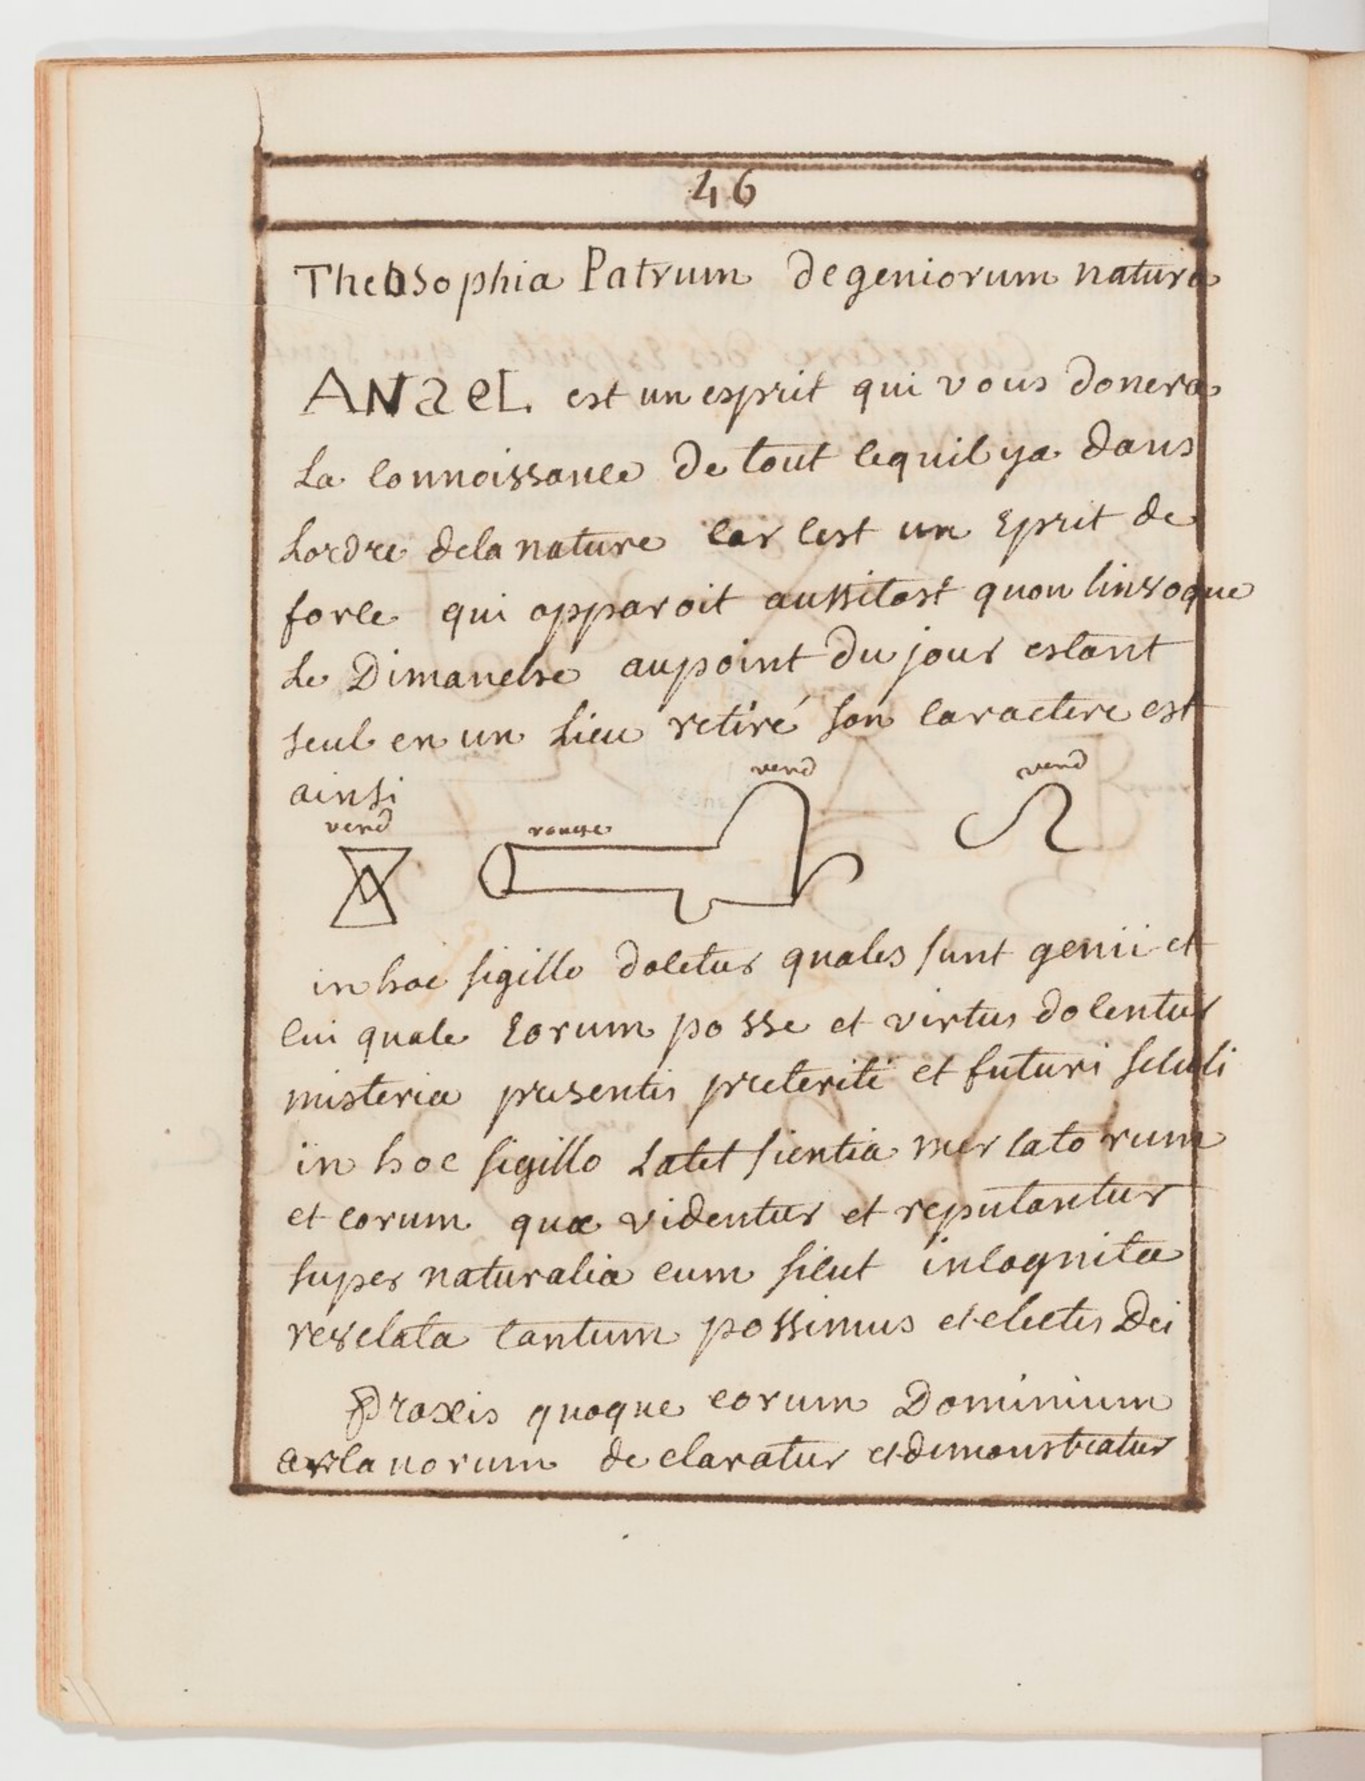 46
Theosophia Patrum de geniorum natura
ANaeL est un esprit qui vous donera
La connoissance de tout cequil ya dans
Lordre dela nature car cest un Eprit de
force qui apparoit aussitost quon linvoque
Le Dimanche aupoint du jour estant
seul en un Lieu retiré son caractere est
ainsi
vend
vend
vend rouge
in hoc sigillo docetur quales sunt genii et
cui quale Eorum posse et virtus docentur
misteria presentis preteriti et futuri seculi
in hoc sigillo Latet sientia mercatorum
et eorum quæ videntur et reputantur
super naturalia cum sicut incognita
revelata tantum possimus et electis Dei
Praxis quoque eorum Dominium
arcanorum declaratur et demonstratur